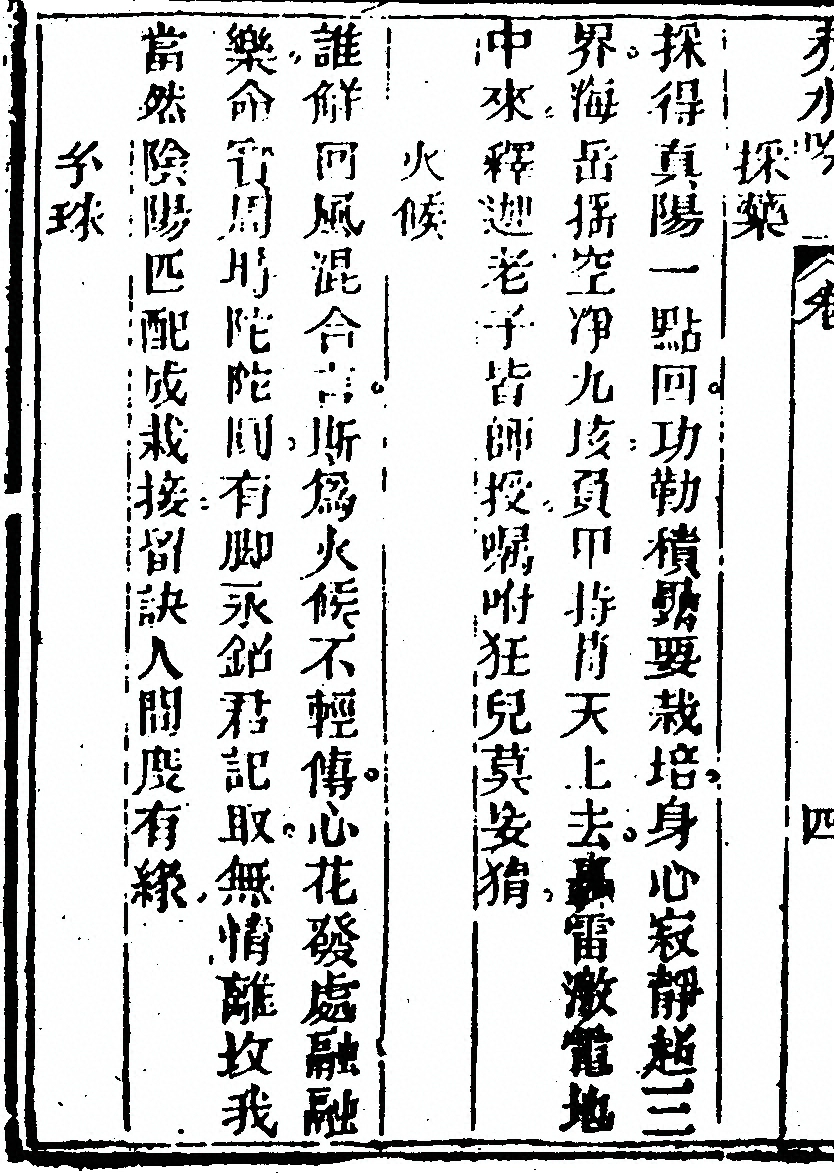 赤水吟 卷 四
採藥
採得真陽一點回。功勤積累要栽培。身心寂靜超三
界。海岳搖空淨九垓。負甲持符天上去。轟雷激電地
中來。釋迦老子皆師授。囑咐狂兒莫妄猜。
火候
誰解回風混合言。斯為火候不輕傳。心花發處融融
樂。命寶周時陀陀圓。有脚永銘君記取。無情離坎我
當然。陰陽匹配成栽接。留訣人間度有緣。
玄珠